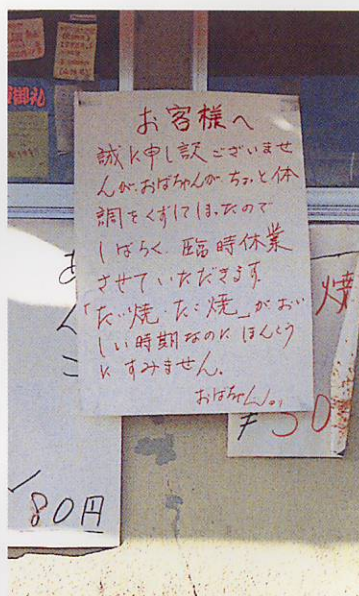 お客様へ
誠に申し訳ございませ
んが、おばちゃんが ちょっと体
調をくずしてしまったので
しばらく 臨時休業
させていただきます
「たい焼・たこ焼」がおい
しい時期なのに ほんとう
に すみません。
おばちゃん。
あんこ
80円
焼